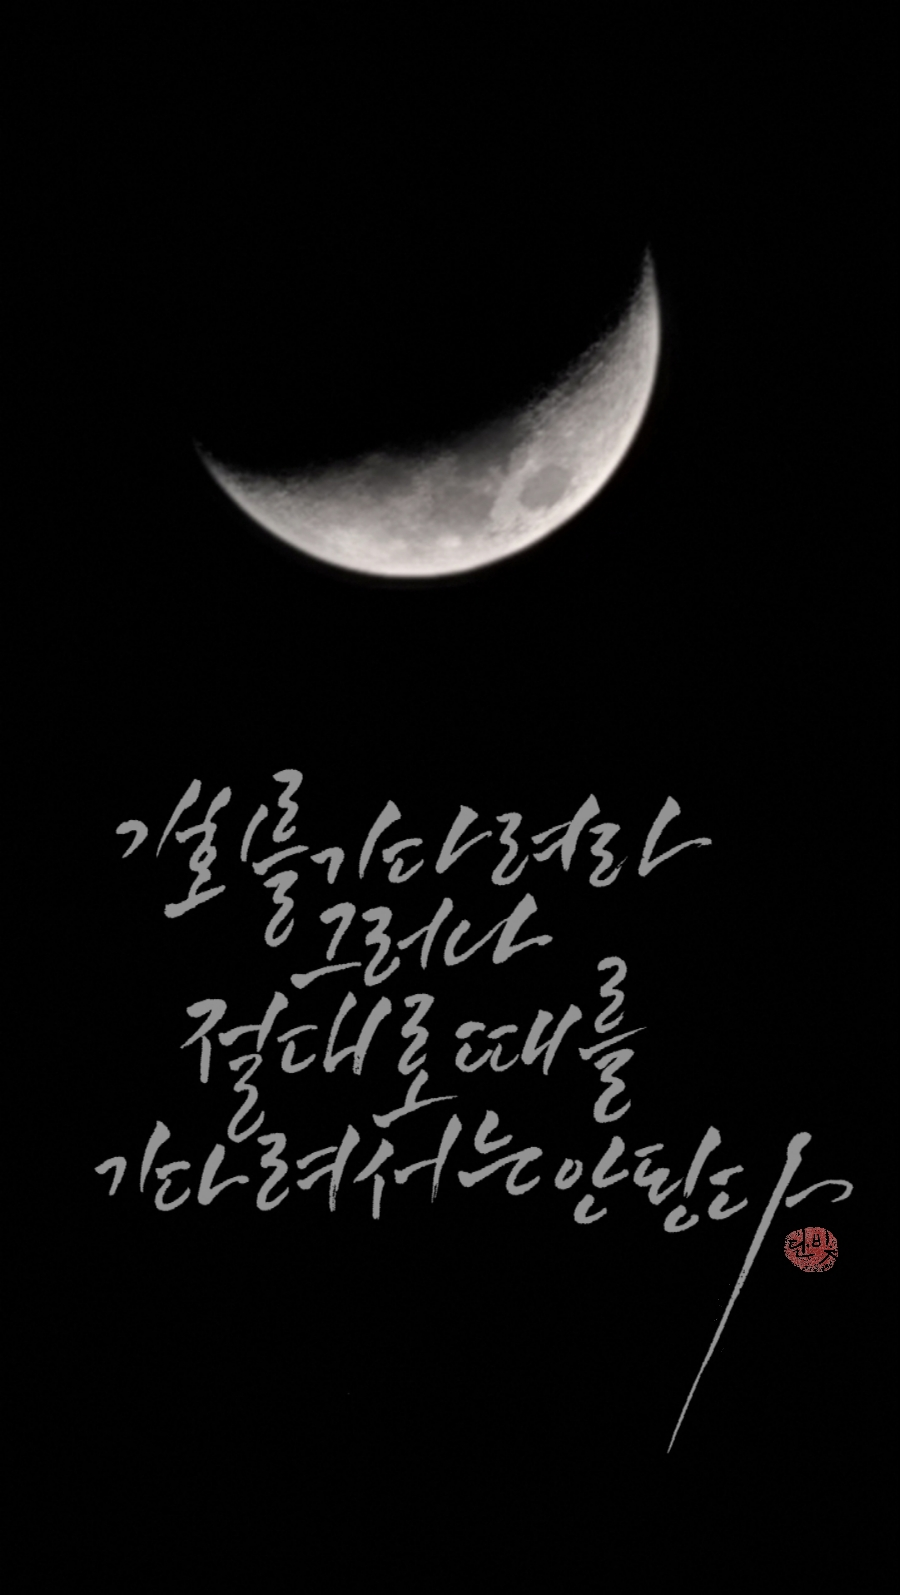 기회를 기다려라
그러나
절대로 때를
기다려서는 안된다